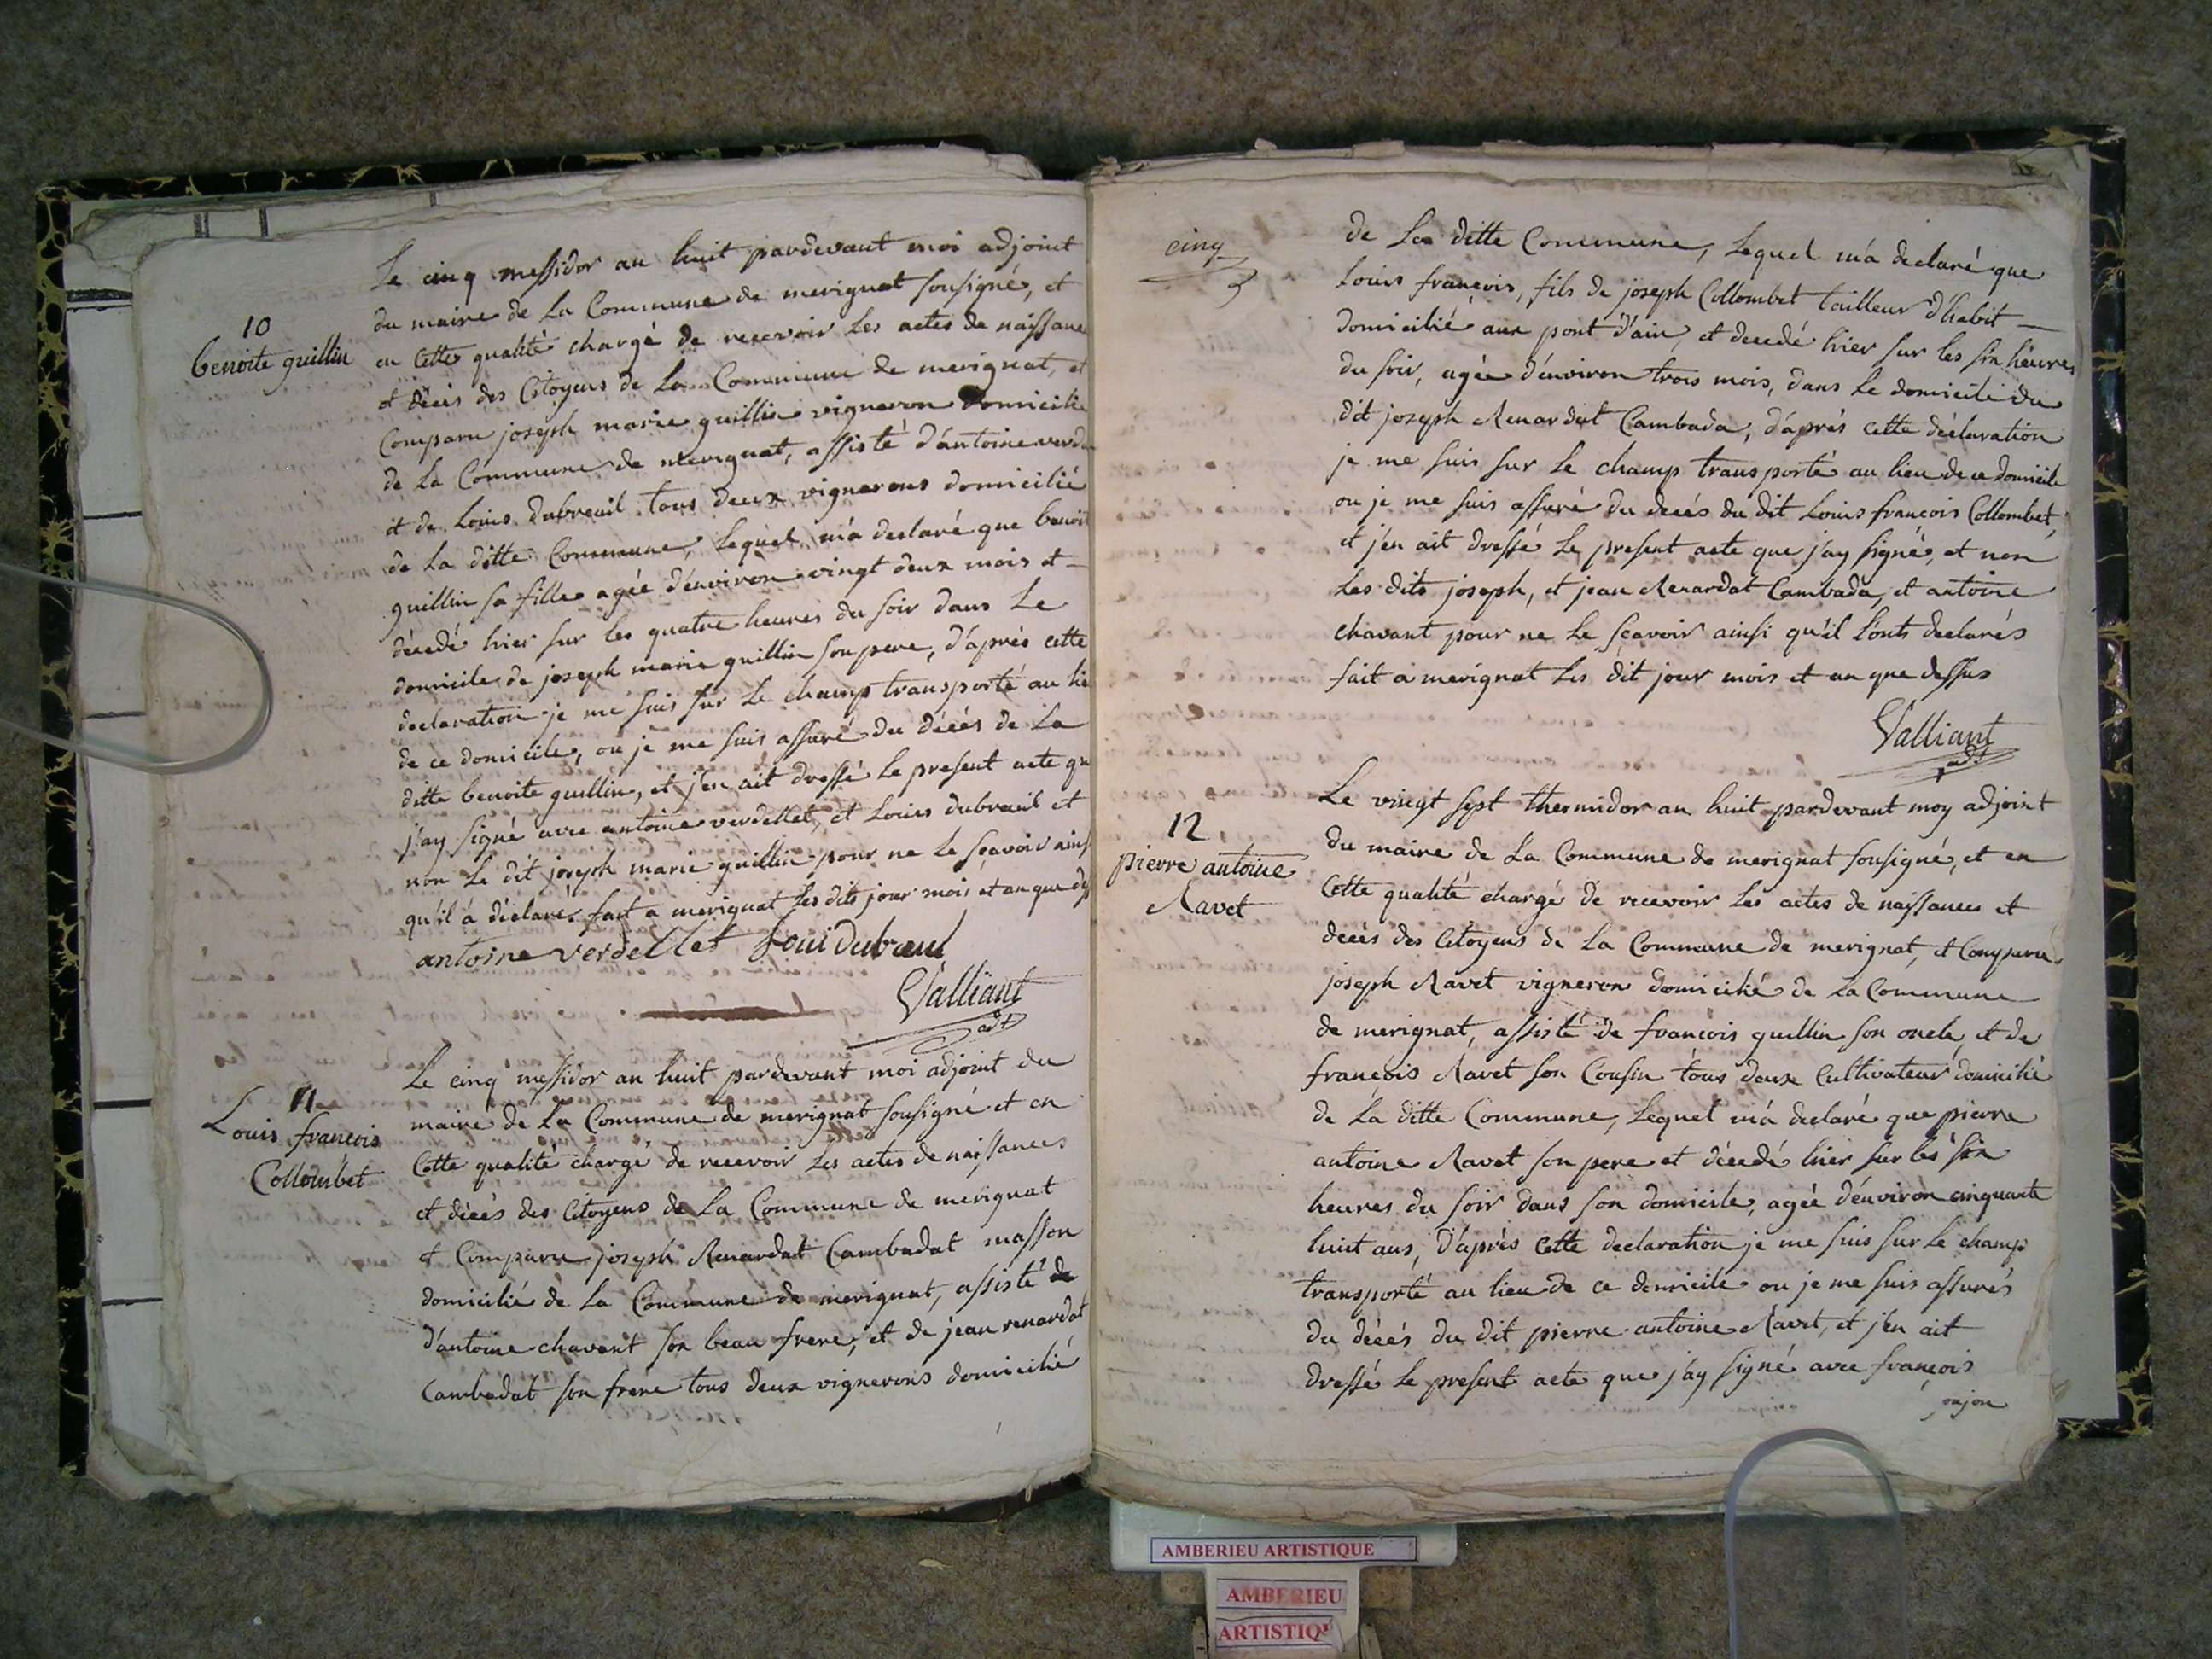 10
benoite guillin
Le cinq messidor an huit pardevant moi adjoint
du maire de La Commune de merignat sousigné, et
en Cette qualité chargé de recevoir Les actes de naissance
et décés des Citoyens de La Commune de merignat, et
Comparu joseph marie guillin vigneron domicilié
de La Commune de merignat, assisté d'antoine verde
et de Louis dubreuil tous deux vignerons domicilié
de La ditte Commune, Lequel m'a declaré que benoi
guillin sa fille agée d'environ vingt deux mois et
décedé hier sur les quatre heures du soir dans Le
domicile de joseph marie guillin son pere, d'aprés cette
declaration je me suis sur Le champ transporté au lie
de ce domicile, ou je me suis assuré du décés de La
ditte benoite guillin, et j'en ait dressé Le present acte qu
j'ay signé avec antoine verdellet, et Louis dubreuil et
non Le dit joseph marie guillin pour ne Le sçavoir ains
qu'il á déclaré. fait a merignat Les dits jour mois et an que des
antoine verdellet Loui Dubreul
Valliant
adt
11
Louis francois
Collombet
Le cinq messidor an huit pardevant moi adjoint du
maire de La Commune de merignat sousigné et en
Cette qualité chargé de recevoir Les actes de naissances
et décés des Citoyens de La Commune de merignat
et Comparu joseph Renardat Cambadat masson
domicilié de La Commune de merignat, assisté de
d'antoine chavant son beau frere, et de jean renardat
Cambadat son frere tous deux vignerons domicilié
cinq
de La ditte Commune, Lequel m'a declaré que
Louis françois, fils de joseph Collombet tailleur d'habit
domicilié aux pont d'ain, et decedé hier sur les six heures
du soir, agée d'environ trois mois, dans Le domicile du
dit joseph Renardat Cambada, d'aprés cette déclaration
je me suis sur Le champ transporté au lieu de ce domicile
ou je me suis assuré du decés du dit Louis francois Collombet,
et j'en ait dressé Le present acte que j'ay signé, et non
Les dits joseph, et jean Renardat Cambada, et antoine
chavant pour ne Le sçavoir ainsi qu'il l'onts declarés
fait a merignat Les dit jour mois et an que dessus
Valliant
adt
12
pierre antoine
Ravet
Le vingt sept thermidor an huit pardevant moy adjoint
du maire de La Commune de merignat sousigné, et en
Cette qualité chargé de recevoir Les actes de naissances et
decés des Citoyens de La Commune de merignat, et Comparu
joseph Ravet vigneron domicilié de La Commune
de merignat, assisté de francois guillin son oncle, et de
françois Ravet son Cousin tous deux Cultivateur domicilié
de La ditte Commune, Lequel m'a declaré que pierre
antoine Ravet son pere et décedé hier sur les six
heures du soir dans son domicile, agée d'environ cinquante
huit ans, d'aprés Cette declaration je me suis sur Le champ
transporté au lieu de ce domicile ou je me suis assurés
du décés du dit pierre antoine Ravet, et j'en ait
dressé Le present acte que j'ay signé avec françois
AMBERIEU ARTISTIQUE
AMBERIEU
ARTISTIQU